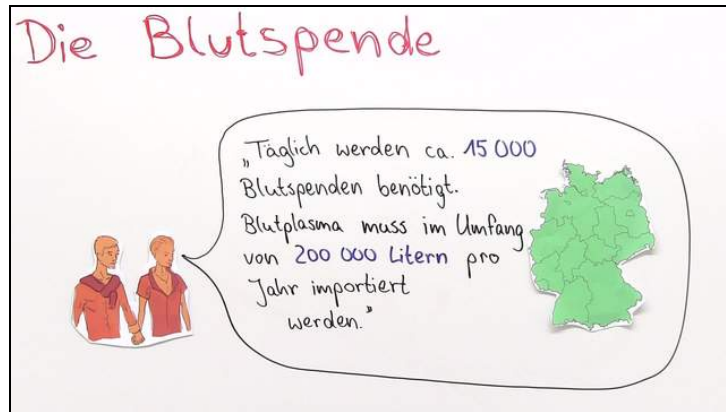 Die Blutspende
„Täglich werden ca. 15 000
Blutspenden benötigt.
Blutplasma muss im Umfang
von 200 000 Litern pro
Jahr importiert
werden.“